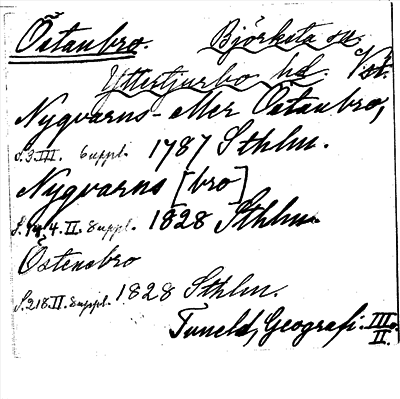 Östanbro. Björksta sn
Yttertjurbo hd. Vst.
Nygvarns- eller Östanbro,
S. 3. III. Suppl. 1787 Sthlm.
Nygvarns [bro]
4. II. Suppl. 1828 Sthlm
Östensbro
S. 218. II. Suppl. 1828 Sthlm.
Tuneld, Geografi. III.
II.